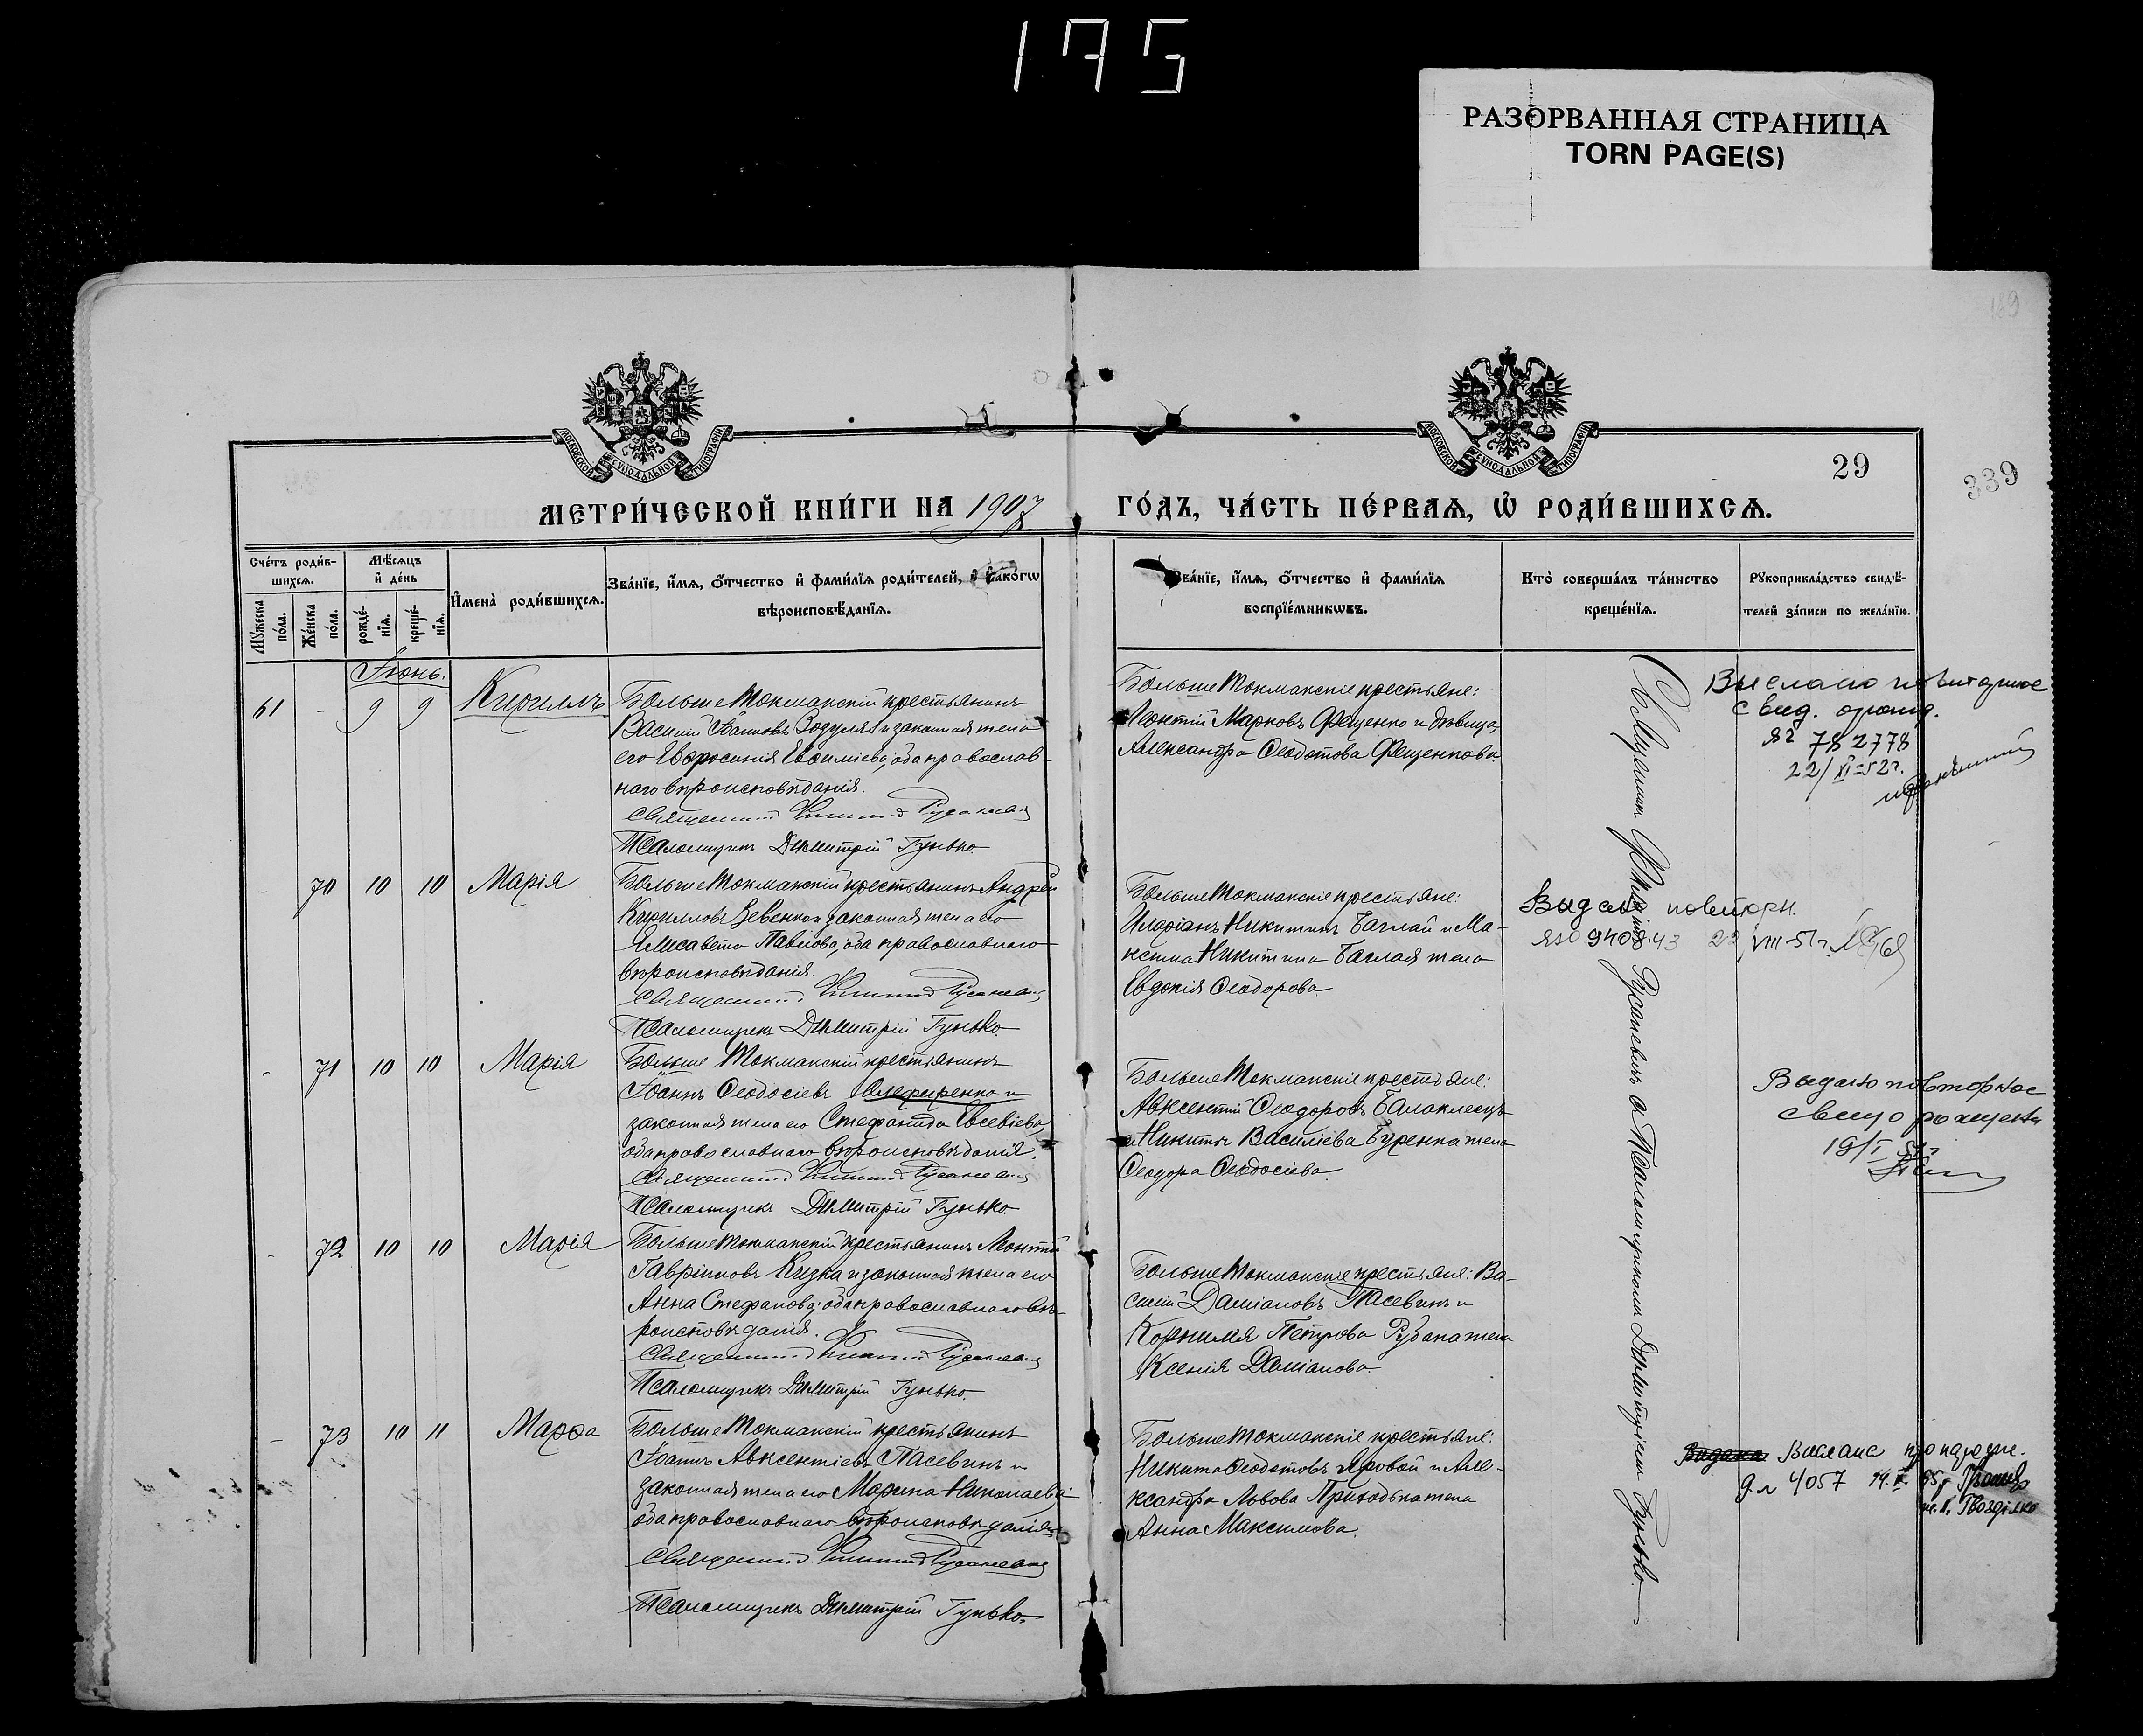 175
РАЗОРВАННАЯ СТРАНИЦА
TORN PAGE(S)
189
МОСКОВСКОЙ СѴНОДАЛЬНОЙ ТИПОГРАФІИ
МОСКОВСКОЙ СѴНОДАЛЬНОЙ ТИПОГРАФІИ
29
339
МЕТРИ́ЧЕСКОЙ КНИ́ГИ НА 1907
ГО́ДЪ, ЧА́СТЬ ПЕ́РВАѦ, Ѡ҆ РОДИ́ВШИХСѦ.
Сче́тъ роди́в-
шихсѧ.
Мꙋ́жеска по́ла.
Же́нска по́ла.
Мѣ́сѧцъ и҆ де́нь
рожде́-нїѧ.
креще́-нїѧ.
И҆мена̀ роди́вшихсѧ.
Зва́нїе, и҆́мѧ, ѻ҆́тчество и҆ фами́лїѧ роди́телей, и҆ како́гѡ
вѣроисповѣ́данїѧ.
Зва́нїе, и҆́мѧ, ѻ҆́тчество и҆ фами́лїѧ
воспрїе́мникѡвъ.
Кто̀ соверша́лъ та́инство
креще́нїѧ.
Рꙋкоприкла́дство свидѣ́-
телей за́писи по жела́нїю.
Іюнь.
61 - 9 9 Кириллъ
Больше Токмакскій крестьянинъ
Василій Іоанновъ Зодуля и законная жена
его Евфросинія Евѳиміева, оба православ-
наго вѣроисповѣданія.
Священникъ
Псаломщикъ Димитрій Гунько.
Больше Токмакскіе крестьяне:
Леонтій Марковъ Фещенко и дѣвица
Александра Ѳеодотова Фещенкова.
Выслано повторное
свид. о рожд.
№ 782778
22/XI-52г.
- 70 10 10 Марія
Больше Токмакскій крестьянинъ Андрей
Кирилловъ Зевенко и законная жена его
Елисавета Павлова, оба православнаго
вѣроисповѣданія.
Священникъ
Псаломщикъ Димитрій Гунько.
Больше Токмакскіе крестьяне:
Иларіанъ Никитинъ Баглай и Ма-
ксима Никитина Баглая жена
Евдокія Ѳеодорова.
Видано повторн.
940843 22 VIII-51г.
- 71 10 10 Марія
Больше Токмакскій крестьянинъ
Іоаннъ Ѳеодосіевъ Олефиренко и
законная жена его Стефанида Евсевіева,
оба православнаго вѣроисповѣданія.
Священникъ
Псаломщикъ Димитрій Гунько.
Больше Токмакскіе крестьяне:
Авксентій Ѳеодоровъ Балаклеецъ
и Никиты Василіева Буренка жена
Ѳеодора Ѳеодосіева.
Видано повторное
19/I
- 72 10 10 Марія
Больше Токмакскій крестьянинъ Леонтій
Гавріиловъ Кизка и законная жена его
Анна Стефанова, оба православнаго вѣ-
роисповѣданія.
Священникъ
Псаломщикъ Димитрій Гунько.
Больше Токмакскіе крестьяне: Ва-
силій Даміановъ Пасевинъ и
Корнилія Петрова Рубана жена
Ксенія Даміанова.
- 73 10 11 Марѳа
Больше Токмакскій крестьянинъ
Іоаннъ Авксентіевъ Пасевинъ и
законная жена его Марина Николаева
оба православнаго вѣроисповѣданія.
Священникъ
Псаломщикъ Димитрій Гунько.
Больше Токмакскіе крестьяне:
Никита Ѳеодотовъ Яровой и Але-
ксандра Львова Приходька жена
Анна Максимова.
Видана Вислано
4057
Гвозділко
Священникъ Русаневичъ с Псаломщикомъ Димитріемъ Гунько.